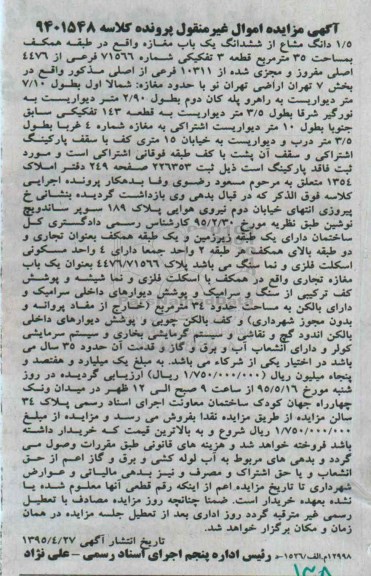 آگهی مزایده اموال غیرمنقول پرونده کلاسه ۹۴۰۱۵۴۸
۱/۵ دانگ مشاع از ششدانگ یک باب مغازه واقع در طبقه همکف
بمساحت ۳۵ مترمربع قطعه ۳ تفکیکی شماره ۷۱۵۶۶ فرعی از ۴۴۷۶
اصلی مفروز و مجزی شده از ۱۰۳۱۱ فرعی از اصلی مذکور واقع در
بخش ۷ تهران اراضی تهران نو با حدود مغازه: شمالا اول بطول ۷/۱۰
متر دیواریست به راهرو پله کان دوم بطول ۲/۹۰ متر دیواریست به
نورگیر شرقا بطول ۳/۵ متر دیواریست به قطعه ۱۴۳ تفکیکی سابق
جنوبا بطول ۱۰ متر دیواریست اشتراکی به مغازه شماره ۴ غربا بطول
۳/۵ متر درب و دیواریست به خیابان ۱۵ متری کف با سقف پارکینگ
اشتراکی و سقف آن پشت با کف طبقه فوقانی اشتراکی است و مورد
ثبت فاقد پارکینگ است ذیل ثبت ۲۲۶۳۵۳ صفحه ۲۴۹ دفتر املاک
۱۳۵۴ متعلق به مرحوم مسعود رضوی وفا بدهکار پرونده اجرایی
کلاسه فوق الذکر که در قبال بدهی وی بازداشت گردیده بنشانی خ
پیروزی انتهای خیابان دوم نیروی هوایی پلاک ۱۸۹ سوپر ساندویچ
نوشین طبق نظریه مورخ ۹۵/۲/۳۰ کارشناس رسمی دادگستری کل
ساختمان دارای یک طبقه زیرزمین و یک طبقه همکف بعنوان تجاری و
دو طبقه بالای همکف هر طبقه ۲ واحد جمعا دارای ۴ واحد مسکونی
اسکلت فلزی و نما سنگ می باشد پلاک ۴۴۷۶/۷۱۵۶۶ بعنوان یک باب
مغازه تجاری واقع در همکف با اسکلت فلزی و نما شیشه و پوشش
کف ترکیبی از سنگ و سرامیک و پوشش دیوارهای داخلی سرامیک و
دارای بالکن به مساحت حدود ۳۴ مترمربع (خارج از مفاد پروانه و
بدون مجوز شهرداری) و کف بالکن چوبی و پوشش دیوارهای داخلی
بالکن اندود گچ و نقاشی و سیستم گرمایشی بخاری و سیستم سرمایشی
کولر و دارای انشعاب آب و برق و گاز و قدمت آن حدود ۳۵ سال می
باشد در اختیار یکی از شرکاء می باشد. به مبلغ یک میلیارد و هفتصد و
پنجاه میلیون ریال (۱/۷۵۰/۰۰۰/۰۰۰ ریال) ارزیابی گردیده در روز
شنبه مورخ ۹۵/۵/۱۶ از ساعت ۹ صبح الی ۱۲ ظهر در میدان ونک
چهارراه جهان کودک ساختمان معاونت اجرای اسناد رسمی پلاک ۳۴
سالن مزایده از طریق مزایده نقدا بفروش می رسد و مزایده از مبلغ
۱/۷۵۰/۰۰۰/۰۰۰ ریال شروع و به بالاترین قیمت که خریدار داشته
باشد فروخته خواهد شد و هزینه های قانونی طبق مقررات وصول می
گردد و بدهی های مربوط به آب لوله کشی و برق و گاز اعم از حق
انشعاب و یا حق اشتراک و مصرف و نیز بدهی مالیاتی و عوارض
شهرداری تا تاریخ مزایده اعم از اینکه رقم قطعی آنها معلوم شده یا
نشده بعهده خریدار است. ضمنا چنانچه روز مزایده مصادف با تعطیل
رسمی غیر مترقبه گردد روز اداری بعد از تعطیل جلسه مزایده در همان
زمان و مکان برگزار خواهد شد.
تاریخ انتشار آگهی ۱۳۹۵/۴/۲۷
۱۲۹۹۸م‌الف/۱۵۲۶-ه رئیس اداره پنجم اجرای اسناد رسمی – علی نژاد